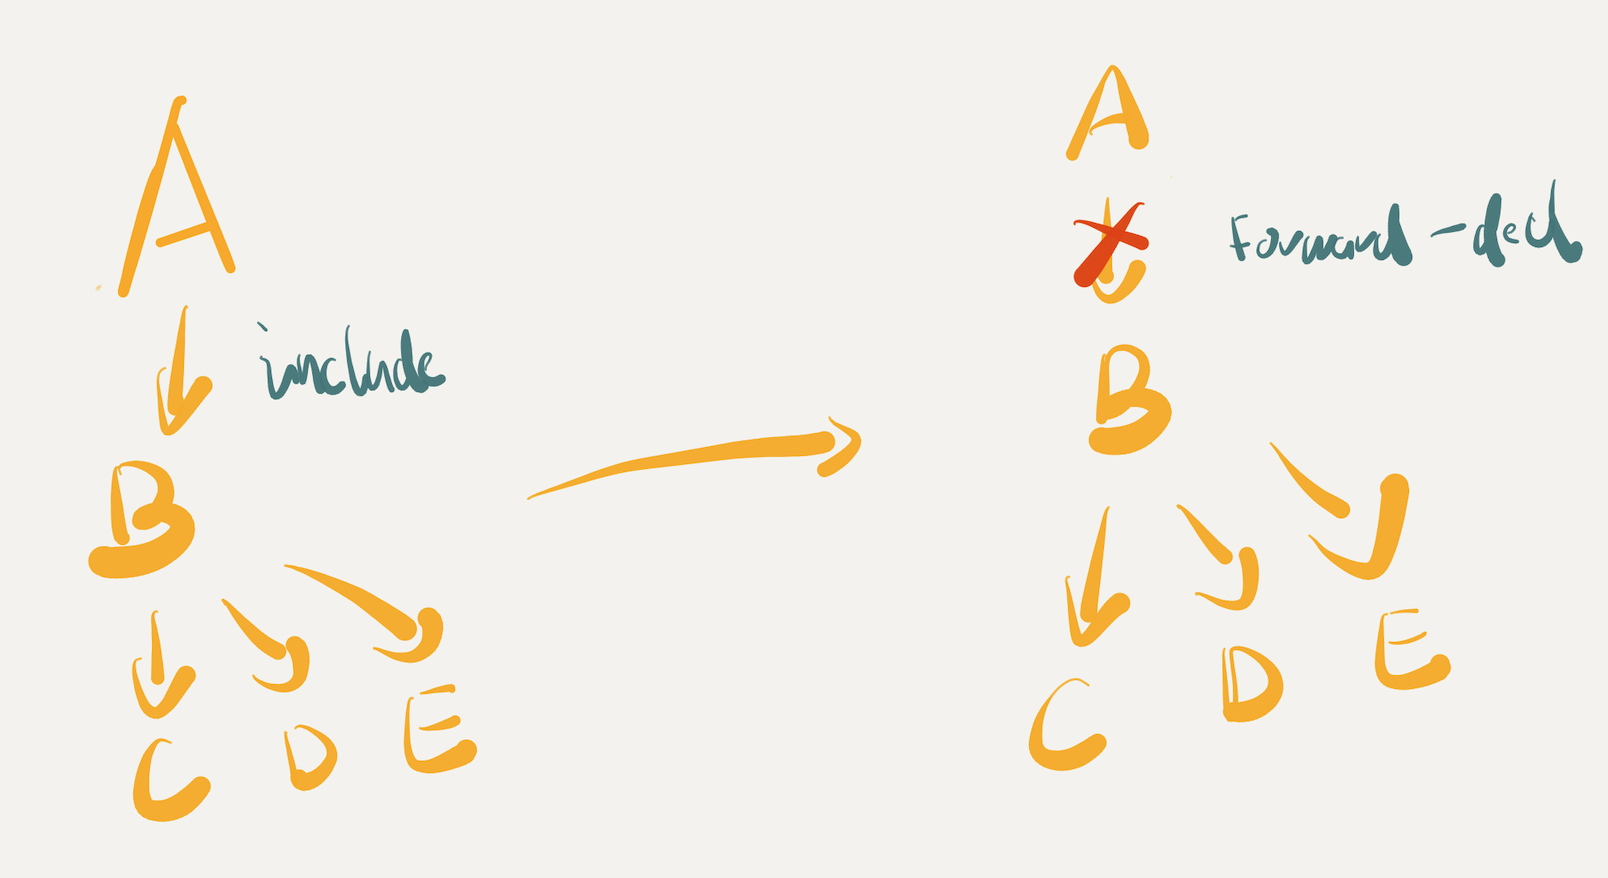 A
include
B
C D E
A
Forward-decl
B
C D E